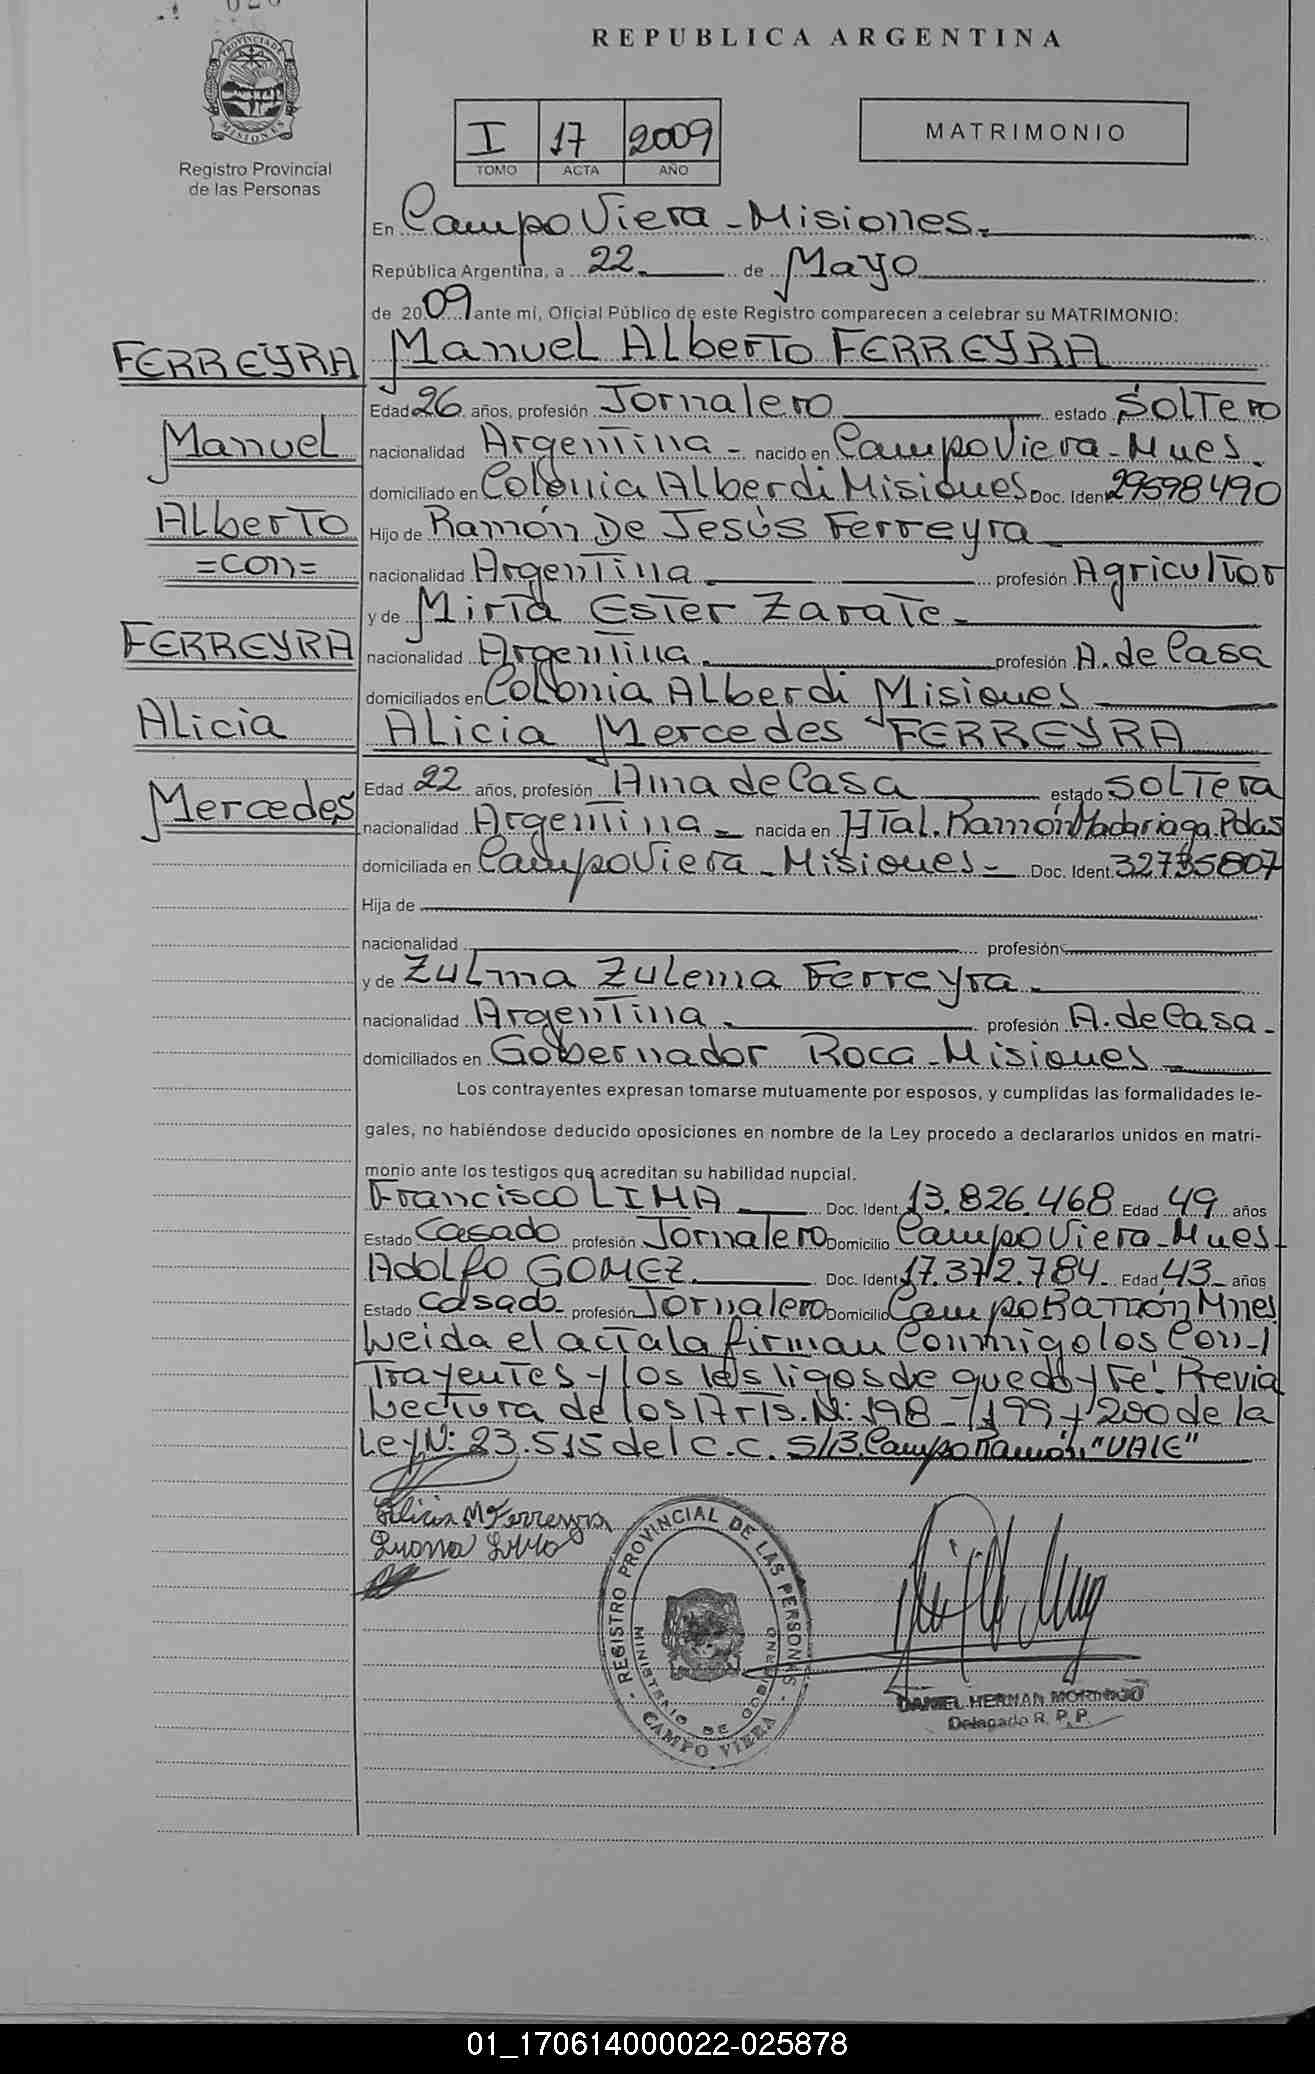 REPUBLICA ARGENTINA
PROVINCIA DE
MISIONES
Registro Provincial
de las Personas
I 17 2009
TOMO ACTA AÑO
MATRIMONIO
En Campo Viera - Misiones.
República Argentina, a 22 de Mayo
de 2009 ante mí, Oficial Público de este Registro comparecen a celebrar su MATRIMONIO:
FERREYRA Manuel Alberto FERREYRA
Edad 26 años, profesión Jornalero estado Soltero
Manuel nacionalidad Argentina - nacido en Campo Viera - Mnes.
domiciliado en Colonia Alberdi Misiones Doc. Ident 29598490
Alberto Hijo de Ramón De Jesús Ferreyra
=con= nacionalidad Argentina profesión Agricultor
y de Mirta Ester Zarate -
FERREYRA nacionalidad Argentina profesión A. de Casa
domiciliados en Colonia Alberdi Misiones
Alicia Alicia Mercedes FERREYRA
Edad 22 años, profesión Ama de Casa estado Soltera
Mercedes nacionalidad Argentina - nacida en HTal. Ramón Madariaga. Pdas
domiciliada en Campo Viera - Misiones - Doc. Ident. 32735807
Hija de
nacionalidad profesión
y de Zulma Zulema Ferreyra
nacionalidad Argentina profesión A. de Casa -
domiciliados en Gobernador Roca - Misiones
Los contrayentes expresan tomarse mutuamente por esposos, y cumplidas las formalidades le-
gales, no habiéndose deducido oposiciones en nombre de la Ley procedo a declararlos unidos en matri-
monio ante los testigos que acreditan su habilidad nupcial.
Francisco LIMA Doc. Ident. 13.826.468 Edad 49 años
Estado Casado profesión Jornalero Domicilio Campo Viera - Mnes
ADOLFO GOMEZ Doc. Ident 17.372.784 Edad 43 años
Estado Casado profesión Jornalero Domicilio Campo Ramón Mnes
Leida el acta la firman Conmigo los Con-
Trayentes y los testigos de que doy Fe! Previa
Lectura de los Arts. N: 198 - 199 y 200 de la
Ley N: 23.515 del C.C. S/B. Campo Ramón "VALE"
Alicia M Ferreyra
REGISTRO PROVINCIAL DE LAS PERSONAS
MINISTERIO DE GOBIERNO
CAMPO VIERA
DANIEL HERNAN MORINIGO
Delegado R. P. P.
01_170614000022-025878